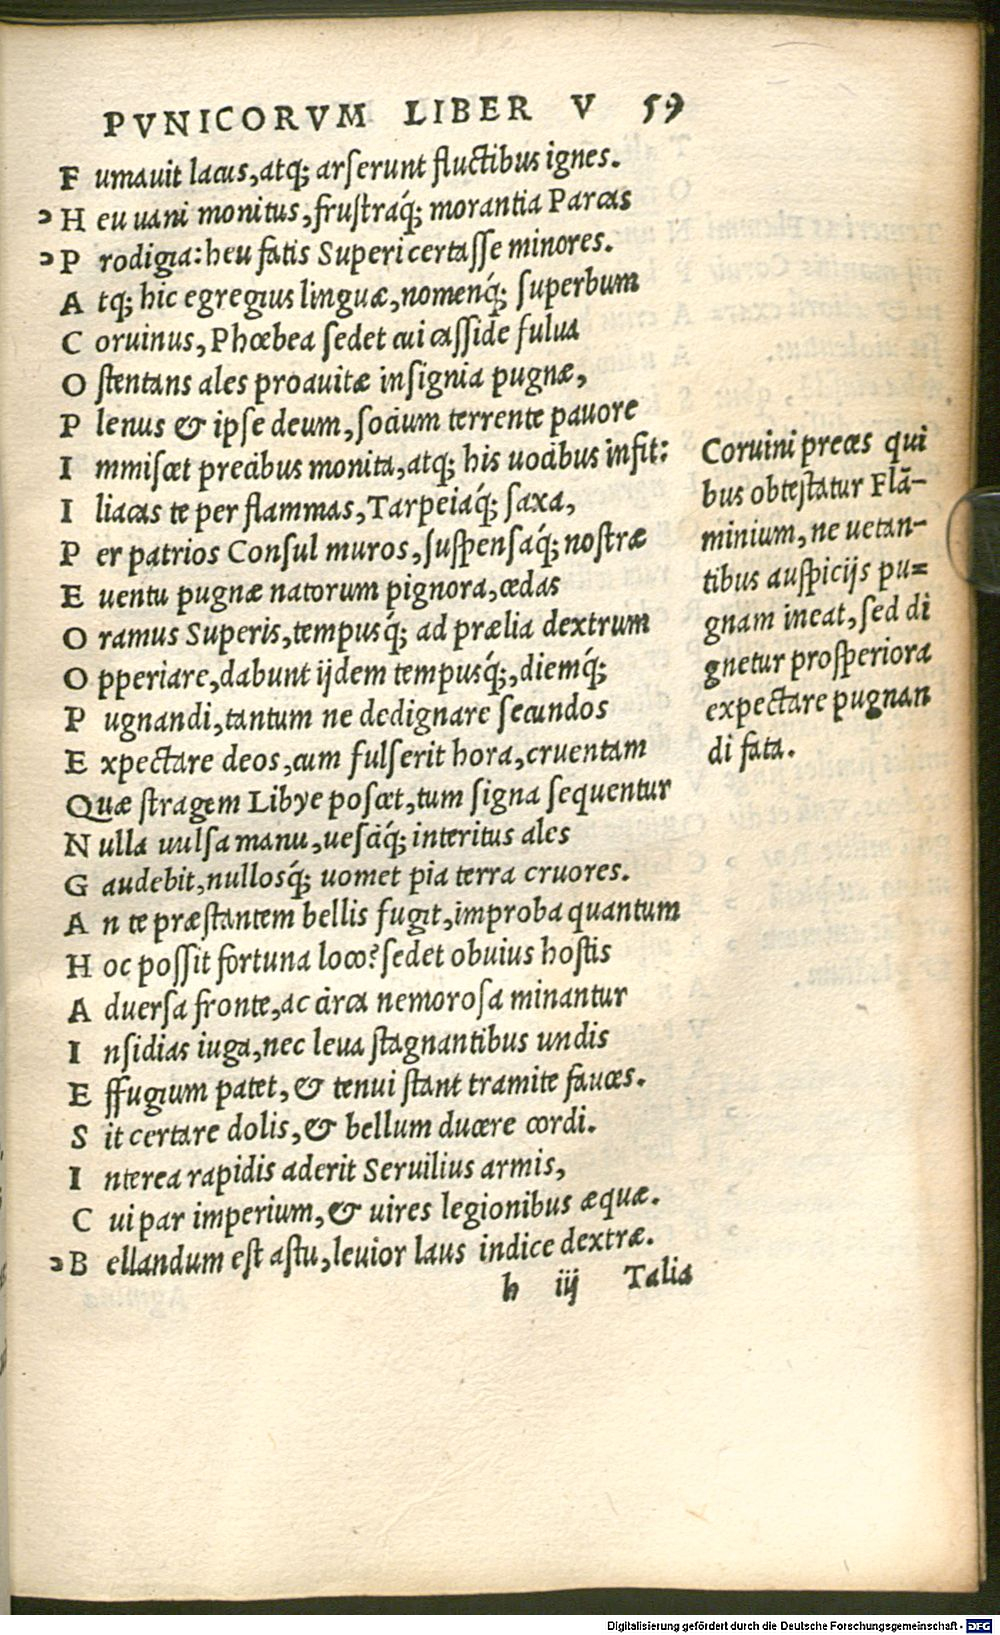 PVNICORVM LIBER V 59
F umauit lacus, atq; arserunt fluctibus ignes.
H eu uani monitus, frustráq; morantia Parcas
P rodigia: heu fatis Superi certasse minores.
A tq; hic egregius linguæ, nomenq́; superbum
C oruinus, Phœbea sedet cui casside fulua
O stentans ales proauitæ insignia pugnæ,
P lenus & ipse deum, socium terrente pauore
I mmiscet precibus monita, atq; his uocibus infit:
I liacas te per flammas, Tarpeiaq́; saxa,
P er patrios Consul muros, suspensaq́; nostræ
E uentu pugnæ natorum pignora, cedas
O ramus Superis, tempusq́; ad prælia dextrum
O pperiare, dabunt ijdem tempusq́;, diemq́;
P ugnandi, tantum ne dedignare secundos
E xpectare deos, cum fulserit hora, cruentam
Quæ stragem Libye poscet, tum signa sequentur
N ulla uulsa manu, uesciq́; interitus ales
G audebit, nullosq́; uomet pia terra cruores.
A n te præstantem bellis fugit, improba quantum
H oc possit fortuna loco? sedet obuius hostis
A duersa fronte, ac circa nemorosa minantur
I nsidias iuga, nec leua stagnantibus undis
E ffugium patet, & tenui stant tramite fauces.
S it certare dolis, & bellum ducere cordi.
I nterea rapidis aderit Seruilius armis,
C ui par imperium, & uires legionibus æquæ.
B ellandum est astu, leuior laus indice dextræ.
h iij Talia
Coruini preces qui
bus obtestatur Flā-
minium, ne uetan-
tibus auspicijs pu=
gnam ineat, sed di
gnetur prosperiora
expectare pugnan
di fata.
Digitalisierung gefördert durch die Deutsche Forschungsgemeinschaft - DFG